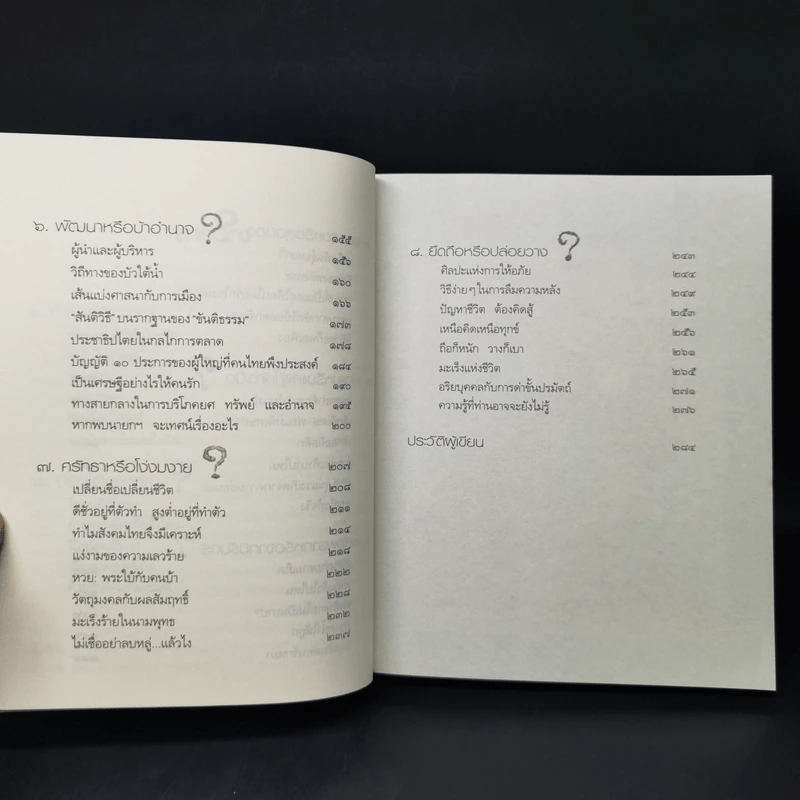 ๖. พัฒนาหรือบ้าอำนาจ ? ๑๕๕
ผู้นำและผู้บริหาร ๑๕๖
วิถีทางของบัวใต้น้ำ ๑๖๐
เส้นแบ่งศาสนากับการเมือง ๑๖๖
"สันติวิธี" บนรากฐานของ "ขันติธรรม" ๑๗๓
ประชาธิปไตยในกลไกการตลาด ๑๗๘
บัญญัติ ๑๐ ประการของผู้ใหญ่ที่คนไทยพึงประสงค์ ๑๘๔
เป็นเศรษฐีอย่างไรให้คนรัก ๑๙๐
ทางสายกลางในการบริโภคยศ ทรัพย์ และอำนาจ ๑๙๕
หากพบนายกฯ จะเทศน์เรื่องอะไร ๒๐๐
๗. ศรัทธาหรือโง่งมงาย ? ๒๐๗
เปลี่ยนชื่อเปลี่ยนชีวิต ๒๐๘
ดีชั่วอยู่ที่ตัวทำ สูงต่ำอยู่ที่ทำตัว ๒๑๑
ทำไมสังคมไทยจึงมีเคราะห์ ๒๑๔
แง่งามของความเลวร้าย ๒๑๘
หวย: พระใบ้กับคนบ้า ๒๒๒
วัตถุมงคลกับผลสัมฤทธิ์ ๒๒๘
มะเร็งร้ายในนามพุทธ ๒๓๒
ไม่เชื่ออย่าลบหลู่...แล้วไง ๒๓๗
๘. ยึดถือหรือปล่อยวาง ? ๒๔๓
ศิลปะแห่งการให้อภัย ๒๔๔
วิธีง่ายๆ ในการลืมความหลัง ๒๔๙
ปัญหาชีวิต ต้องคิดสู้ ๒๕๓
เหนือคิดเหนือทุกข์ ๒๕๖
ถือก็หนัก วางก็เบา ๒๖๑
มะเร็งแห่งชีวิต ๒๖๕
อริยบุคคลกับการด่าขั้นปรมัตถ์ ๒๗๑
ความรู้ที่ท่านอาจจะยังไม่รู้ ๒๗๖
ประวัติผู้เขียน ๒๘๔